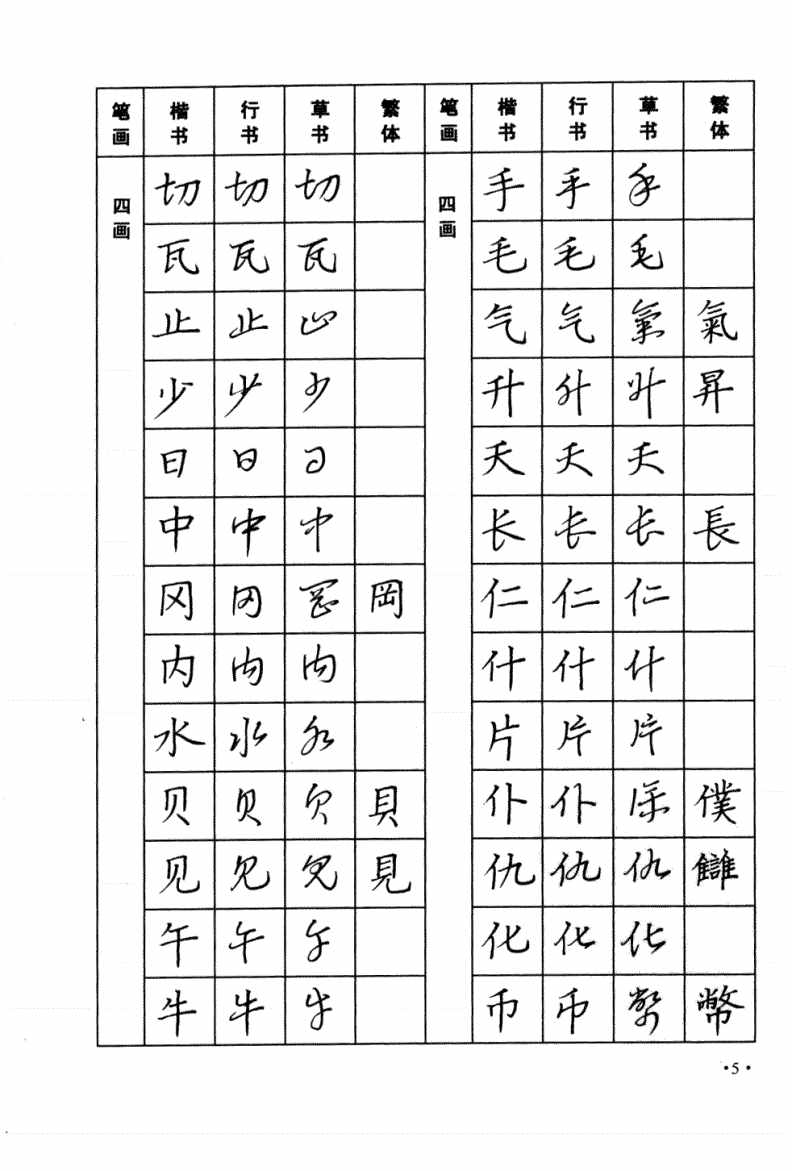 笔画 楷书 行书 草书 繁体 笔画 楷书 行书 草书 繁体
四画 切 切 切 四画 手 手 手
瓦 瓦 瓦 毛 毛 毛
止 止 止 气 气 氣 氣
少 少 少 升 升 升 昇
日 日 日 夭 夭 夭
中 中 中 长 长 长 長
冈 冈 岡 岡 仁 仁 仁
内 内 内 什 什 什
水 水 水 片 片 片
贝 贝 贝 貝 仆 仆 僕 僕
见 见 見 見 仇 仇 仇 讎
午 午 午 化 化 化
牛 牛 牛 币 币 幣 幣
·5·